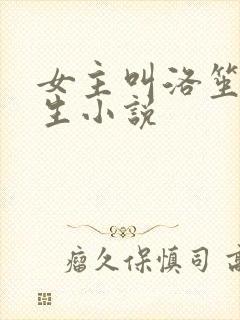 女主叫洛笙
生小説
瘤久保慎司 高